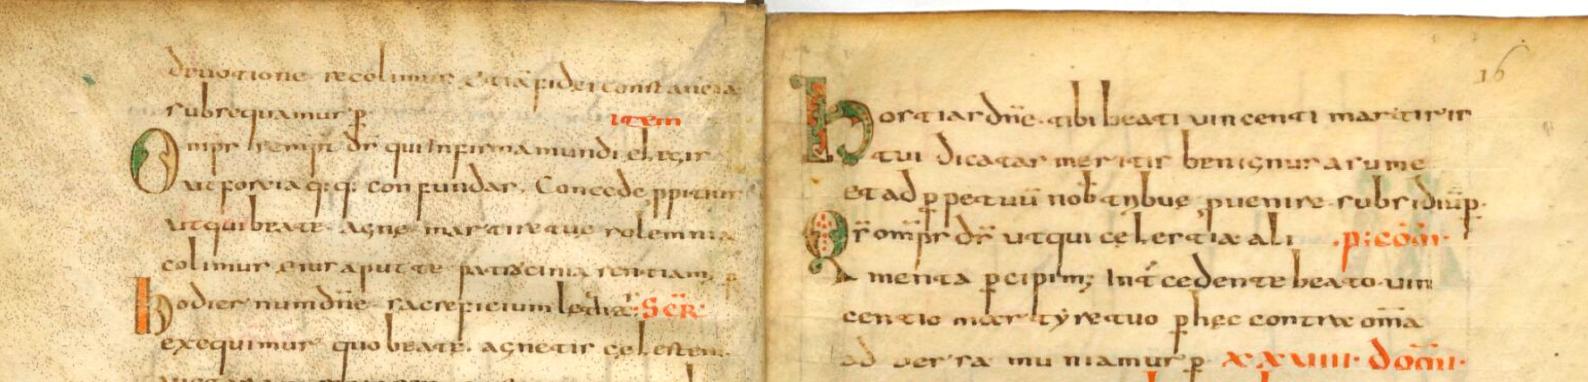 deuotione recolimus etiã fidei constantiã
subsequamur p̱
item
Omps semp̃ dr̃ qui infirma mundi elegis
ut fortia q;q; confundas. Concede ꝓpitius
ut qui beate agne martire tue solemnia
colimus eius aput te patrocinia sentiam;
hodiernum dñe sacreficium letiti
SCR̃
exequimur quo beate agnetis celestem
16
hostias dñe tibi beati uincenti martiris
tui dicatas meritis benignus asume
et ad ꝑpetuũ nob̃ tribue ꝓuenire subsidiũ p̱
Qr̃ om̃ps dr̃ ut qui celestia ali
p; com̃
menta ꝑcipim; Int̃cedente beato uin
centio martyre tuo ꝑ hec contra om̃a
aduersa muniamur p̱ XXVIIII dom̃